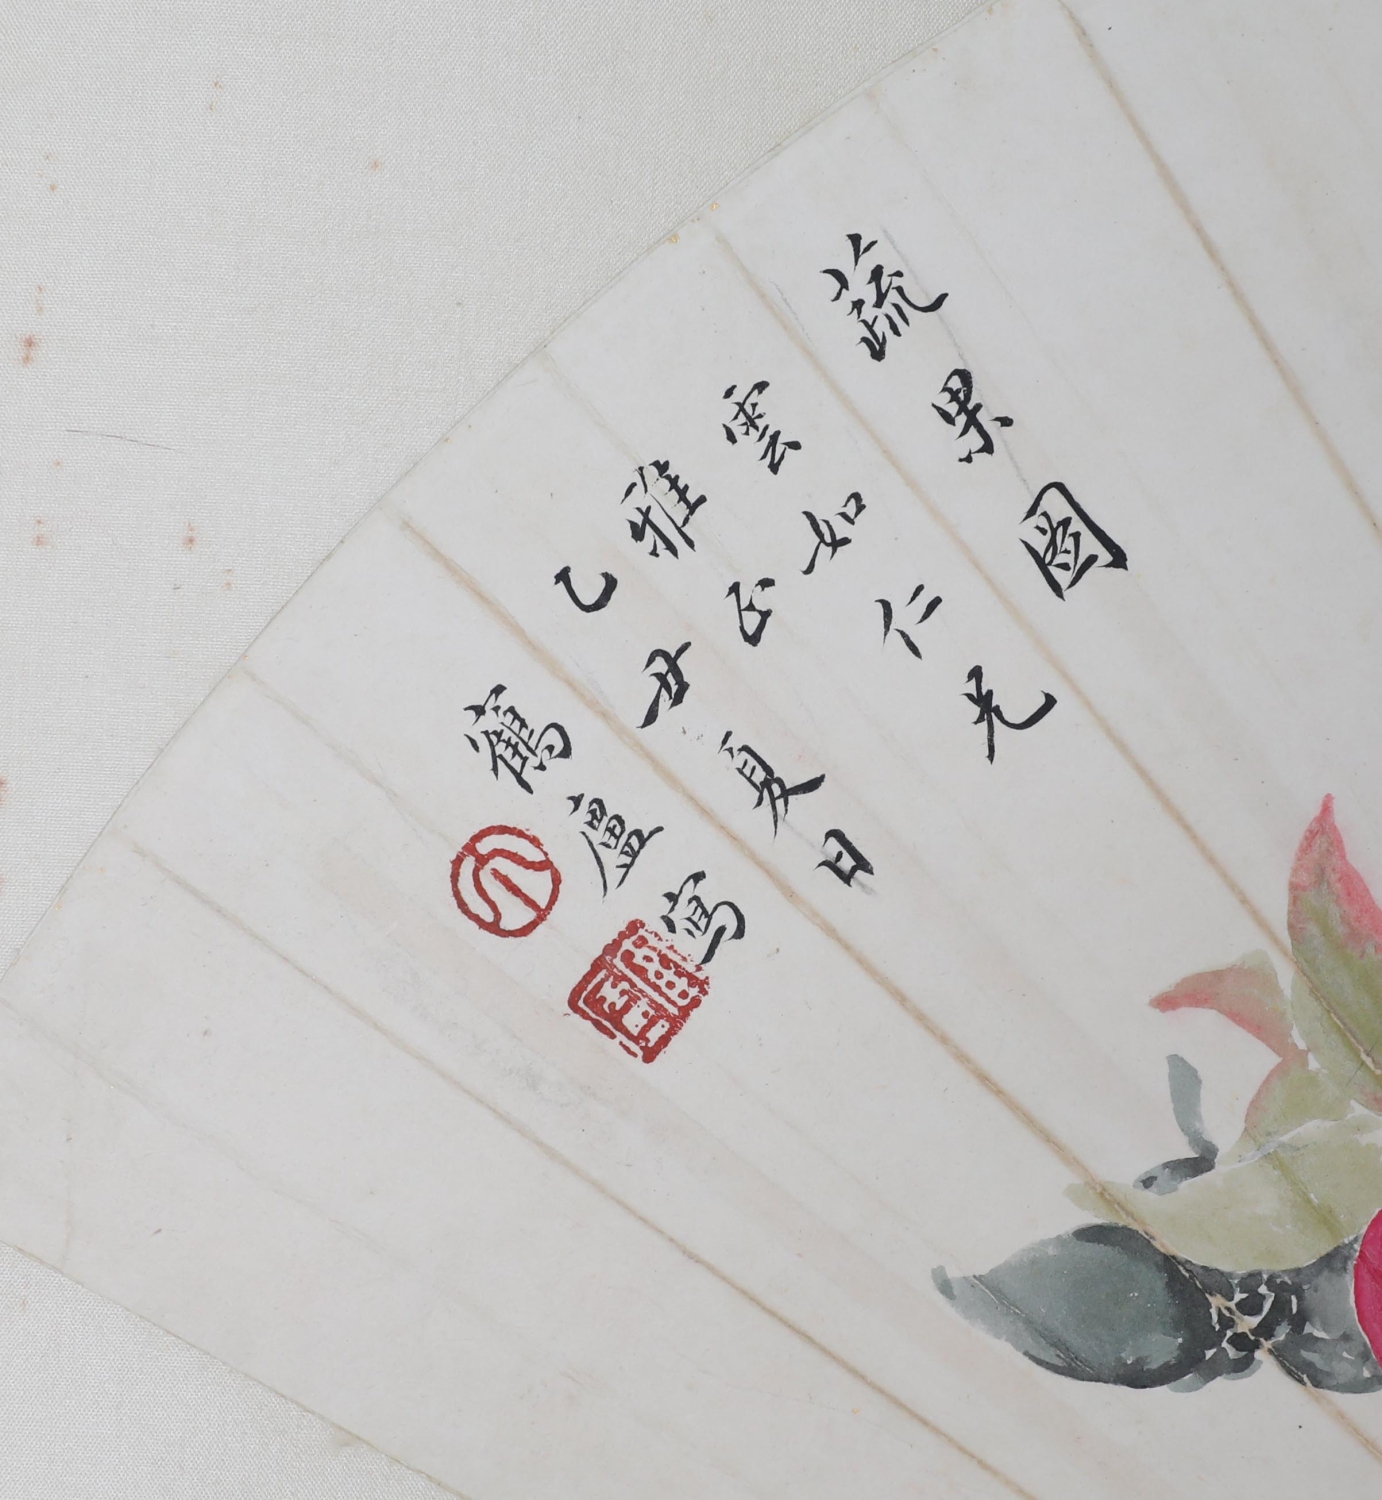 蔬果圖
雲如仁兄
雅正
乙丑夏日
鶴廬寫